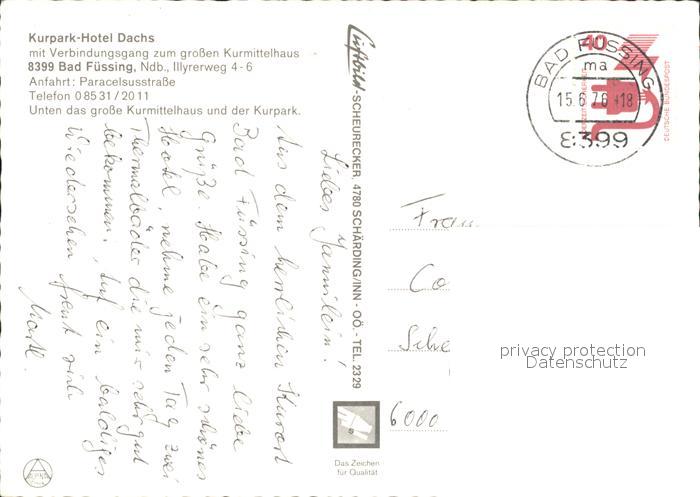 Kurpark-Hotel Dachs
mit Verbindungsgang zum großen Kurmittelhaus
8399 Bad Füssing, Ndb., Illyrerweg 4-6
Anfahrt: Paracelsusstraße
Telefon 0 85 31 / 20 11
Unten das große Kurmittelhaus und der Kurpark.
Liebes
Aus dem herrlichen Kurort
Bad Füssing ganz liebe
Grüße. Habe ein sehr schönes
Hotel, nehme jeden Tag zwei
Thermalbäder die mir sehr gut
bekommen. Auf ein baldiges
Wiedersehen freut sich
Luftbild-SCHEURECKER, 4780 SCHÄRDING/INN - OÖ. - TEL. 2329
BAD FÜSSING
ma
15.6.76-18
8399
40
DEUTSCHE BUNDESPOST
Frau
Co
Sche
6000
privacy protection
Datenschutz
Das Zeichen
für Qualität